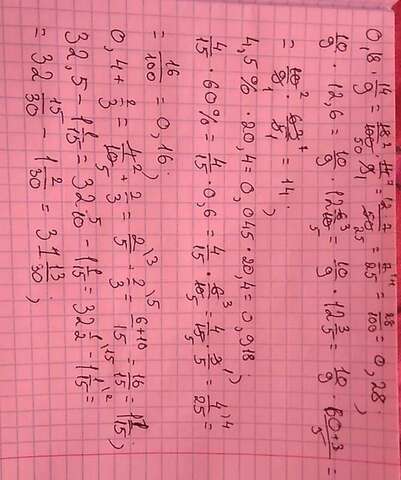 0,18 · 14/9 = 18²/100₅₀ · 14⁷/9₁ = 1·7/25 = 7/25 = 28/100 = 0,28;
10/9 · 12,6 = 10/9 · 12 6³/10₅ = 10/9 · 12 3/5 = 10/9 · 60+3/5 =
= 10²/9₁ · 63⁷/5₁ = 14;
4,5% · 20,4 = 0,045 · 20,4 = 0,918;
4/15 · 60% = 4/15 · 0,6 = 4/15 · 6³/10₅ = 4/15₅ · 3/5 = 4/25 =
= 16/100 = 0,16;
0,4 + 2/3 = 4²/10₅ + 2/3 = 2/5 + 2/3 = 6+10/15 = 16/15 = 1 1/15;
32,5 - 1 1/15 = 32 5/10 - 1 1/15 = 32 1/2 - 1 1/15 =
= 32 15/30 - 1 2/30 = 31 13/30;